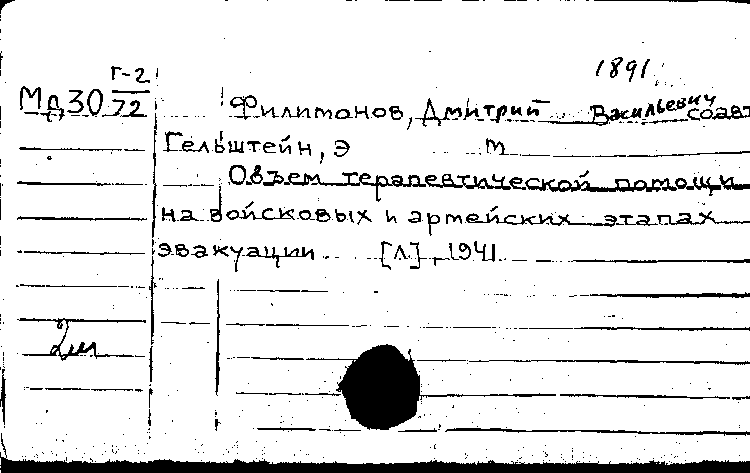 1891
Мд30 Г-2/72 Филимонов, Дмитрий Васильевич соавт
Гельштейн, Э m
Объем терапевтической помощи
на войсковых и армейских этапах
эвакуации. [Л], 1941